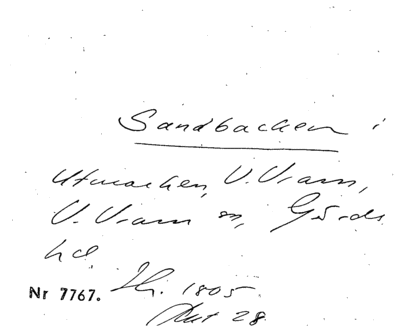 Sandbacken i
Utmarken, V. Vram,
V. Vram sn, Gärds
hd.
Nr 7767. Sk. 1805.
Akt 28